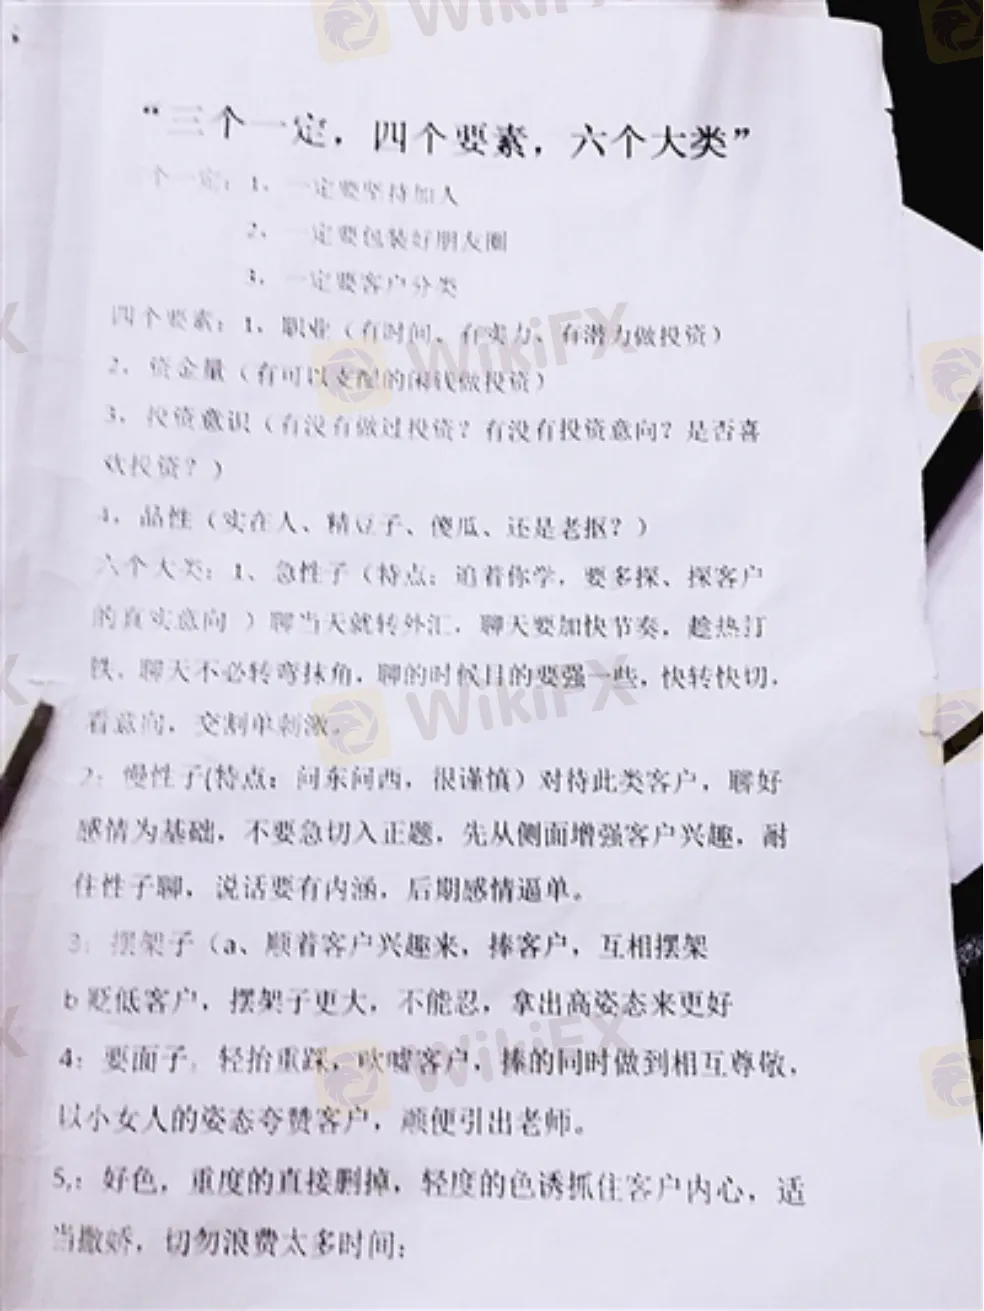 “三个一定，四个要素，六个大类”
三个一定：1、一定要坚持加人
2、一定要包装好朋友圈
3、一定要客户分类
四个要素：1、职业（有时间、有实力、有潜力做投资）
2、资金量（有可以支配的闲钱做投资）
3、投资意识（有没有做过投资？有没有投资意向？是否喜
欢投资？）
4、品性（实在人、精豆子、傻瓜、还是老抠？）
六个大类：1、急性子（特点：追着你学，要多探、探客户
的真实意向 ）聊当天就转外汇，聊天要加快节奏，趁热汀
铁，聊天不必转弯抹角，聊的时候目的要强一些，快转快切，
看意向，交割单刺激。
2：慢性子(特点：问东问西，很谨慎）对待此类客户，聊好
感情为基础，不要急切入正题，先从侧面增强客户兴趣，耐
住性子聊，说话要有内涵，后期感情逼单。
3：摆架子（a、顺着客户兴趣来，捧客户，互相摆架
b 贬低客户，摆架子更大，不能忍，拿出高姿态来更好
4：要面子，轻抬重踩，吹嘘客户，捧的同时做到相互尊敬，
以小女人的姿态夸赞客户，顺便引出老师。
5,：好色，重度的直接删掉，轻度的色诱抓住客户内心，适
当撒娇，切勿浪费太多时间；
WikiFX
WikiFX
WikiFX
WikiFX